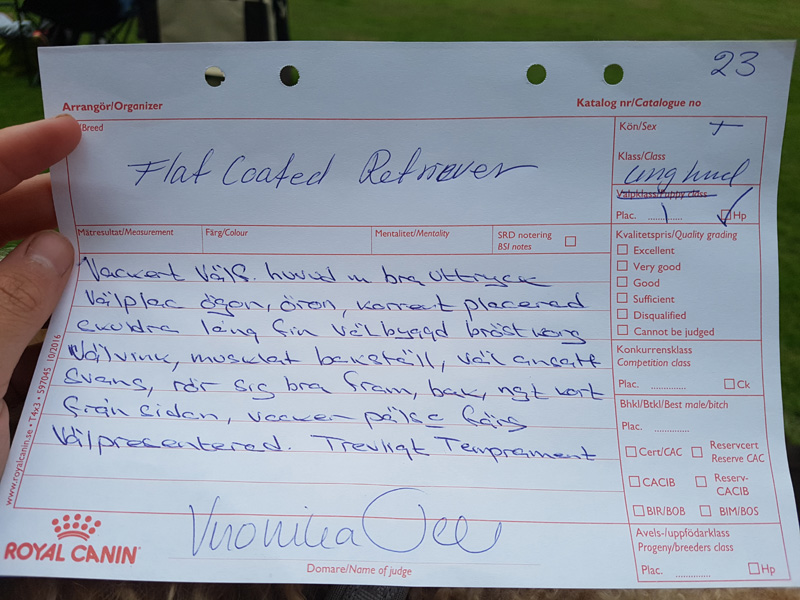 23
Arrangör/Organizer
Katalog nr/Catalogue no
/Breed
Flat Coated Retriever
Kön/Sex
Klass/Class
unghund
Valpklass/Puppy class
Plac. 1 Hp
Mätresultat/Measurement
Färg/Colour
Mentalitet/Mentality
SRD notering
BSI notes
Kvalitetspris/Quality grading
Excellent
Very good
Good
Sufficient
Disqualified
Cannot be judged
Konkurrensklass
Competition class
Plac. Ck
Bhkl/Btkl/Best male/bitch
Plac.
Cert/CAC
Reservcert
Reserve CAC
CACIB
Reserv-
CACIB
BIR/BOB
BIM/BOS
Avels-/uppfödarklass
Progeny/breeders class
Plac. Hp
Vackert välf. huvud m bra uttryck
välplac ögon, öron, korrekt placerad
skuldra lång fin välbyggd bröstkorg
Välvink, musklat bakställ, väl ansatt
svans, rör sig bra fram, bak, ngt kort
från sidan, vacker päls & färg
Välpresenterad. Trevligt Temprament
www.royalcanin.se • T4x3 • 597045 10/2016
ROYAL CANIN
Veronika
Domare/Name of judge